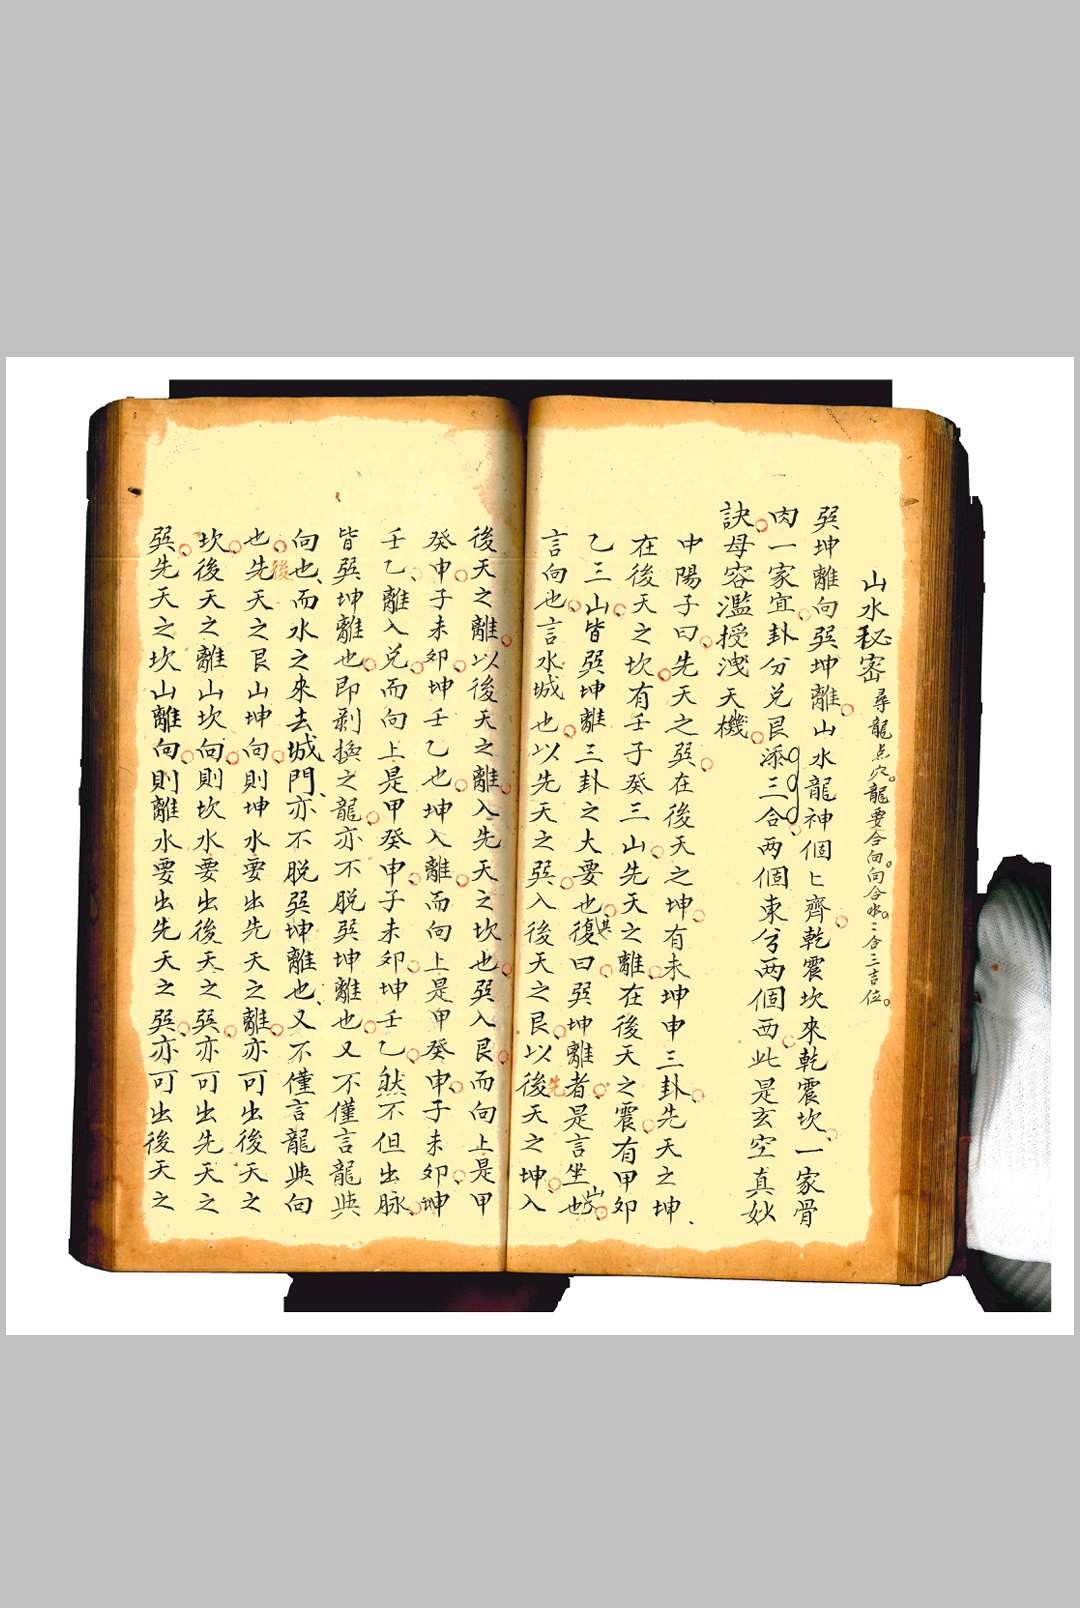 山水秘密 尋龍点穴。龍要合向。向合水。〻合三吉位。
巽坤離向巽坤離山水龍神個〻齊乾震坎來乾震坎一家骨
肉一家宜卦分兌艮添三合两個東兮两個西此是玄空真妙
訣毋容濫授洩天機
中陽子曰先天之巽在後天之坤有未坤申三卦先天之坤、
在後天之坎有壬子癸三山先天之離在後天之震有甲卯
乙三山皆巽坤離三卦之大要也其復曰巽坤離者是言坐山也
言向也言水城也以先天之巽入後天之艮以後先天之坤入
後天之離以後天之離入先天之坎也巽入艮而向上是甲
癸申子未卯坤壬乙也坤入離而向上是甲癸申子未卯坤
壬乙離入兌而向上是甲癸申子未卯坤壬乙然不但出脉
皆巽坤離也即剥換之龍亦不脱巽坤離也又不僅言龍與
向也、而水之來去城門、亦不脱巽坤離也、又不僅言龍與向
也先後天之艮山坤向則坤水要出先天之離亦可出後天之
坎後天之離山坎向則坎水要出後天之巽亦可出先天之
巽先天之坎山離向則離水要出先天之巽亦可出後天之